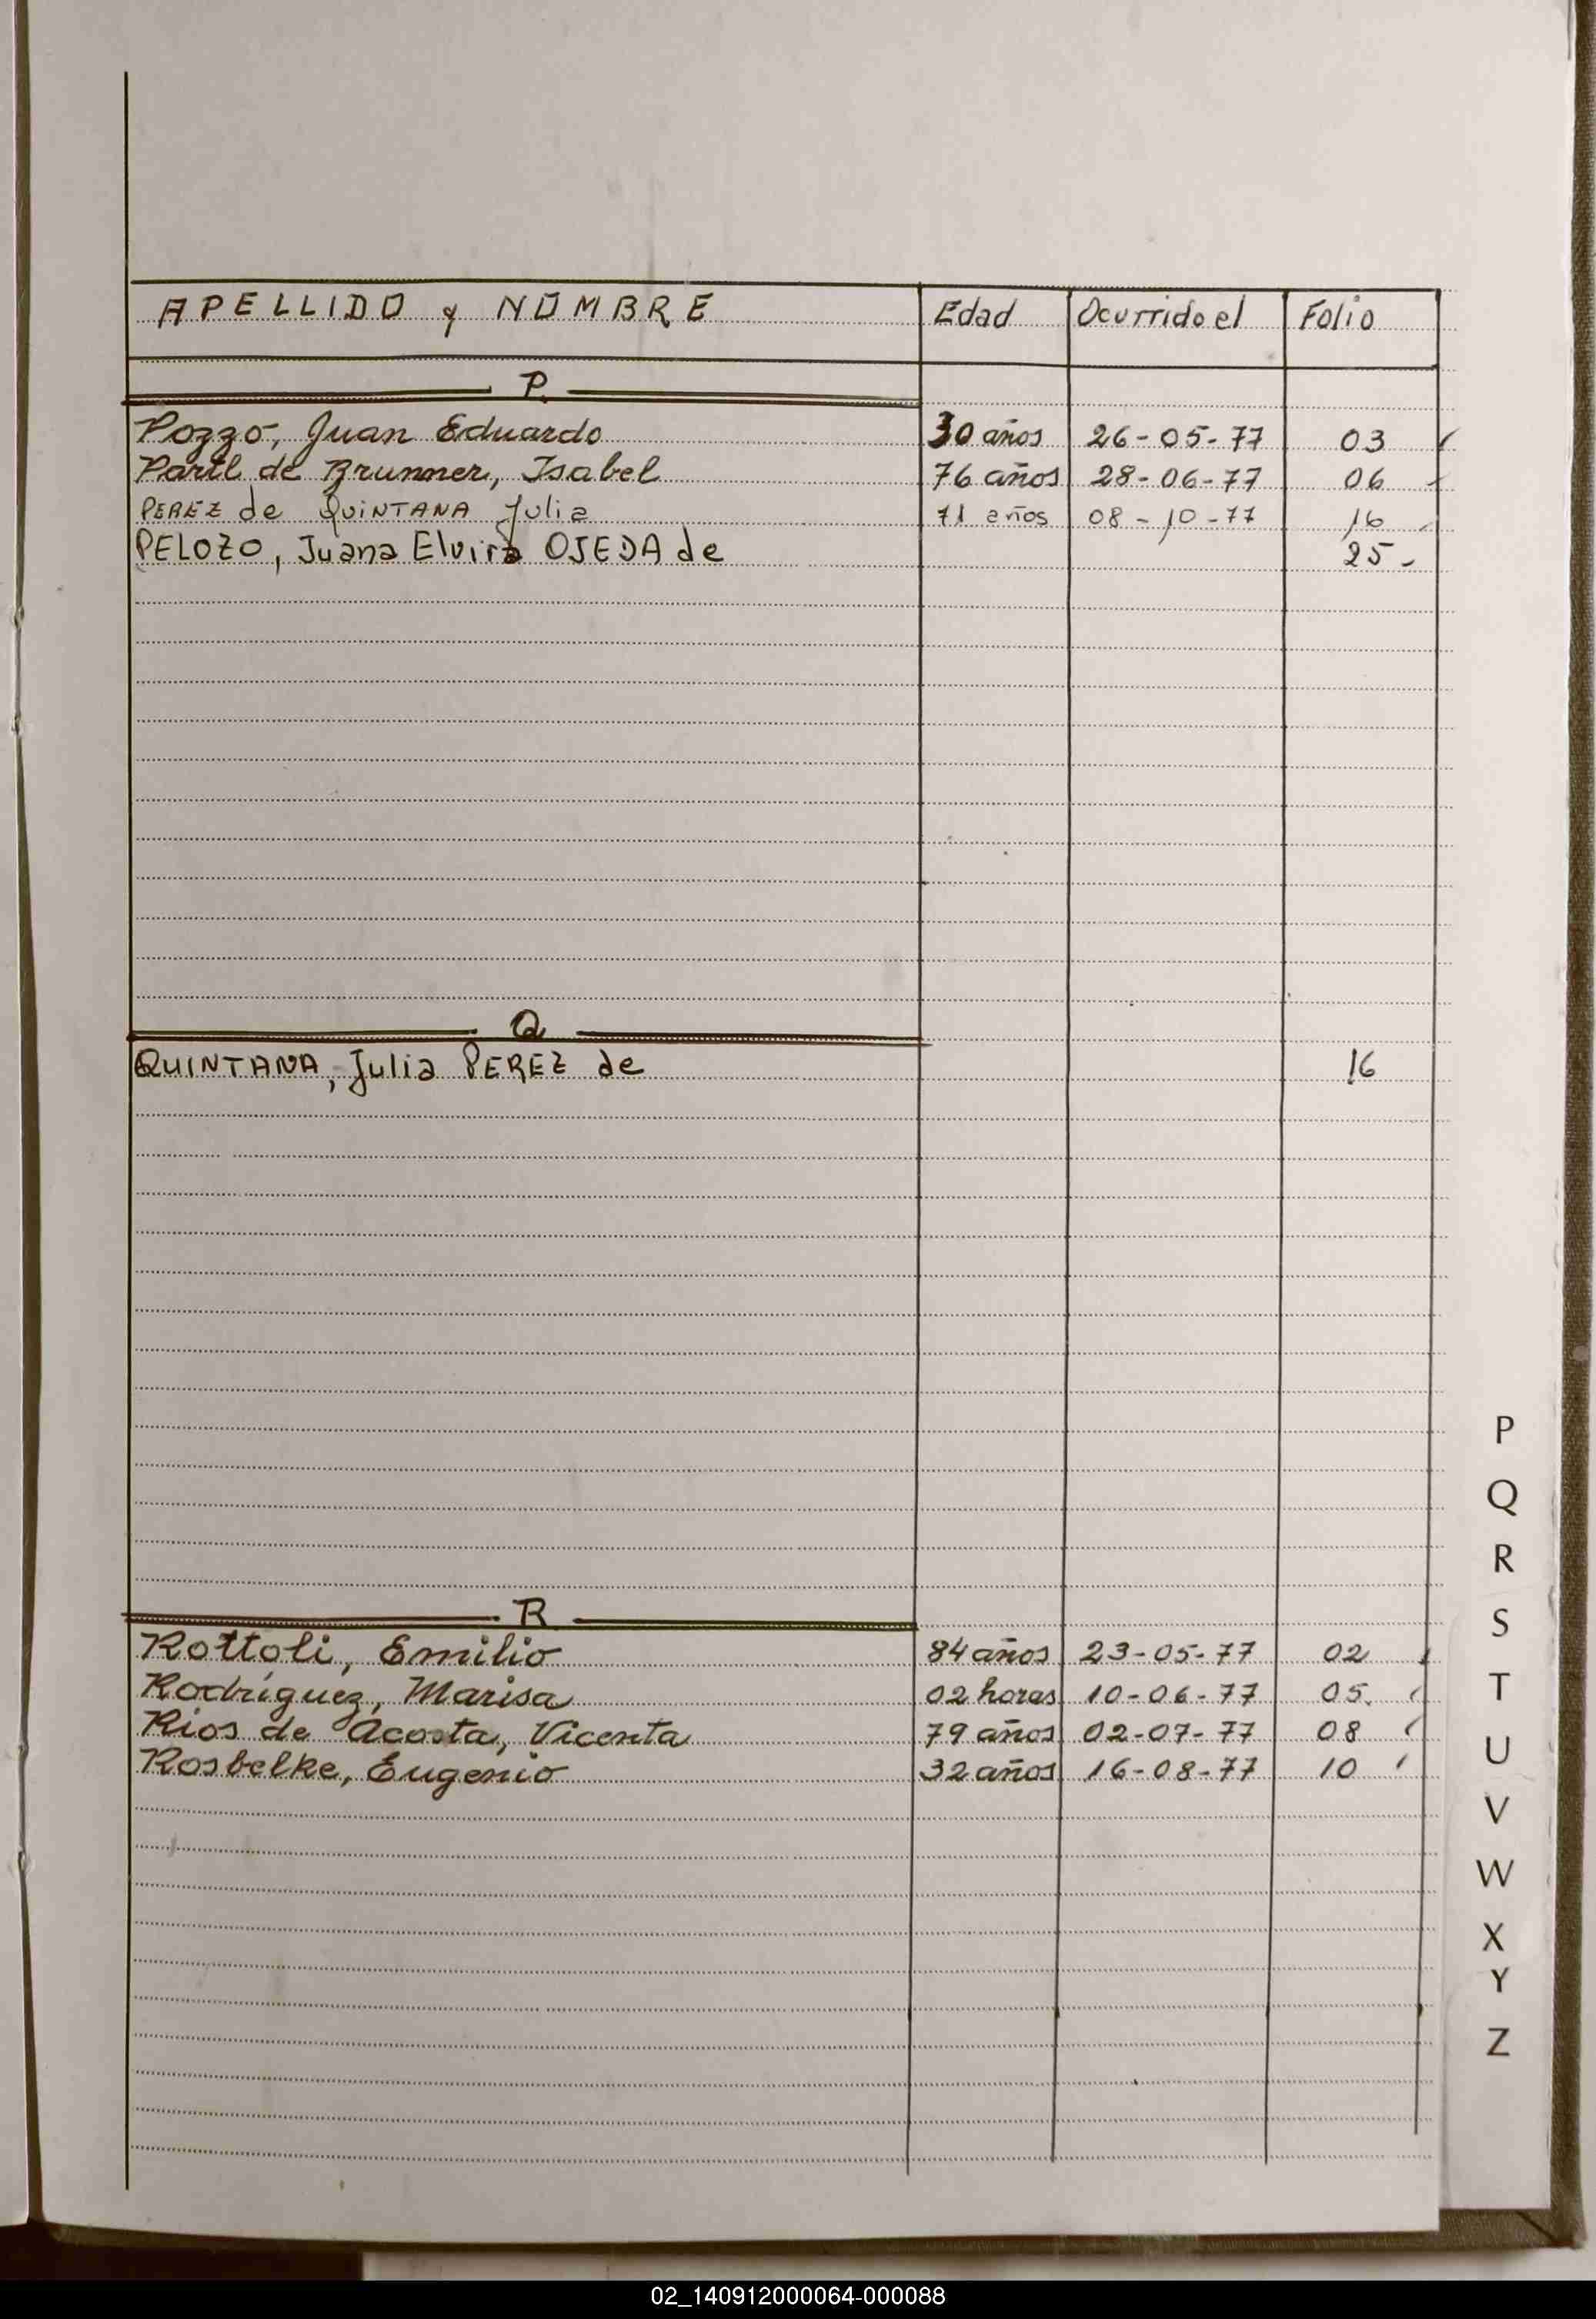 APELLIDO y NOMBRE Edad Ocurrido el Folio
P
Pozzo, Juan Eduardo 30 años 26-05-77 03
Partl de Brunner, Isabel 76 años 28-06-77 06
PEREZ de QUINTANA Julia 71 años 08-10-77 16
PELOZO, Juana Elvira OJEDA de 25-
Q
QUINTANA, Julia PEREZ de 16
R
Rottoli, Emilio 84 años 23-05-77 02
Rodríguez, Marisa 02 horas 10-06-77 05
Rios de Acosta, Vicenta 79 años 02-07-77 08
Rosbelke, Eugenio 32 años 16-08-77 10
P
Q
R
S
T
U
V
W
X
Y
Z
02_140912000064-000088